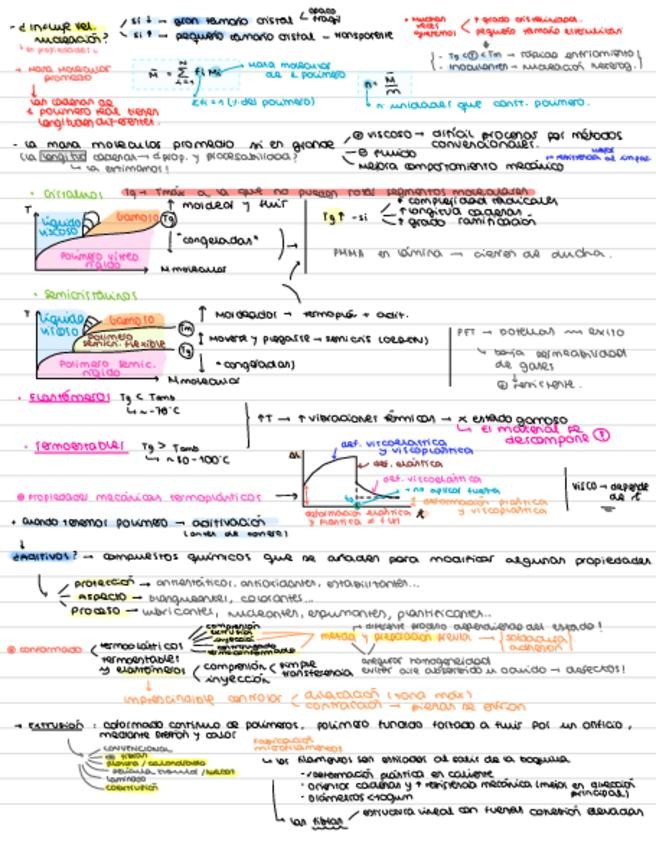 - ¿Influye vel. nucleación?
si ↓ - gran tamaño cristal < opaco frágil
si ↑ - pequeño tamaño cristal - transparente
↑ grado cristalinidad.
pequeño tamaño
- Tg < T < Tm → rápidos enfriamiento
- Inoculantes → nucleación heterog.
→ masa molecular promedio
masa molecular de c. polímero
n unidades que const. polímero.
las cadenas de 1 polímero real tienen longitudes diferentes.
- La masa molecular promedio si es grande
⊕ viscoso → difícil procesar por métodos convencionales.
⊖ fluido
Mejora comportamiento mecánico
resistencia al impac.
(la longitud cadenas → d prop. y procesabilidad?
↳ la estimamos!
· Cristalinos
Tg → Tmáx a la que no pueden rotar segmentos moleculares
T
Líquido viscoso
Gomoso
Tg
Polímero vítreo rígido
M molecular
↑ moldear y fluir
↓ "congeladas"
Tg ↑ - si
↑ complejidad radicales
↑ longitud cadenas
↑ grado ramificación
PMMA en lámina → cierres de ducha.
· Semicristalinos
T
Líquido viscoso
Gomoso
Tm
Polímero semicri. flexible
Tg
Polímero semic. rígido
M molecular
↑ Moldeados → termoplás + adit.
↑ Moverse y plegarse → semicris
↓ "congeladas)
PET → botellas → éxito
↳ baja permeabilidad de gases
⊕ resistente.
· Elastómeros Tg < Tamb
↳ ~ -70°C
· Termoestables Tg > Tamb
↳ ~ 50-100°C
↑T → ↑ vibraciones térmicas → x estado gomoso
↳ el material se descompone
⊛ Propiedades mecánicas termoplásticos →
def. viscoelástica y viscoplástica
def. elástica
def. viscoelástica
→ no aplicar fuerza
deformación plástica y viscoplástica
deformación elástica y plástica
visco → depende de t
+ cuando tenemos polímero → aditivación
(antes de confor.)
¿Aditivos? → compuestos químicos que se añaden para modificar algunas propiedades
Protección → antiestáticos, antioxidantes, estabilizantes...
Aspecto → blanqueantes, colorantes...
Proceso → lubricantes, nucleantes, espumantes, plastificantes...
⊛ conformado
termoplásticos
compresión
extrusión
inyección
termoconformado
termoestables y elastómeros
compresión < simple transferencia
inyección
→ diferente proceso dependiendo del estado!
mezcla y preparación previa →
asegurar homogeneidad
→ defectos!
imprescindible controlar
dilatación
contracción → piezas se enfrían
→ Extrusión : conformado continuo de polímeros, polímero fundido forzado a fluir por un orificio, mediante presión y calor
convencional
de fibras
película
laminado
coextrusión
Fabricación microfilamentos
↳ los filamentos son estirados al salir de la boquilla
- deformación plástica en caliente
· orientar cadenas y ↑ resistencia mecánica (mejor en dirección principal)
· diámetros
↳ las fibras → estructura lineal con fuerzas cohesión elevadas